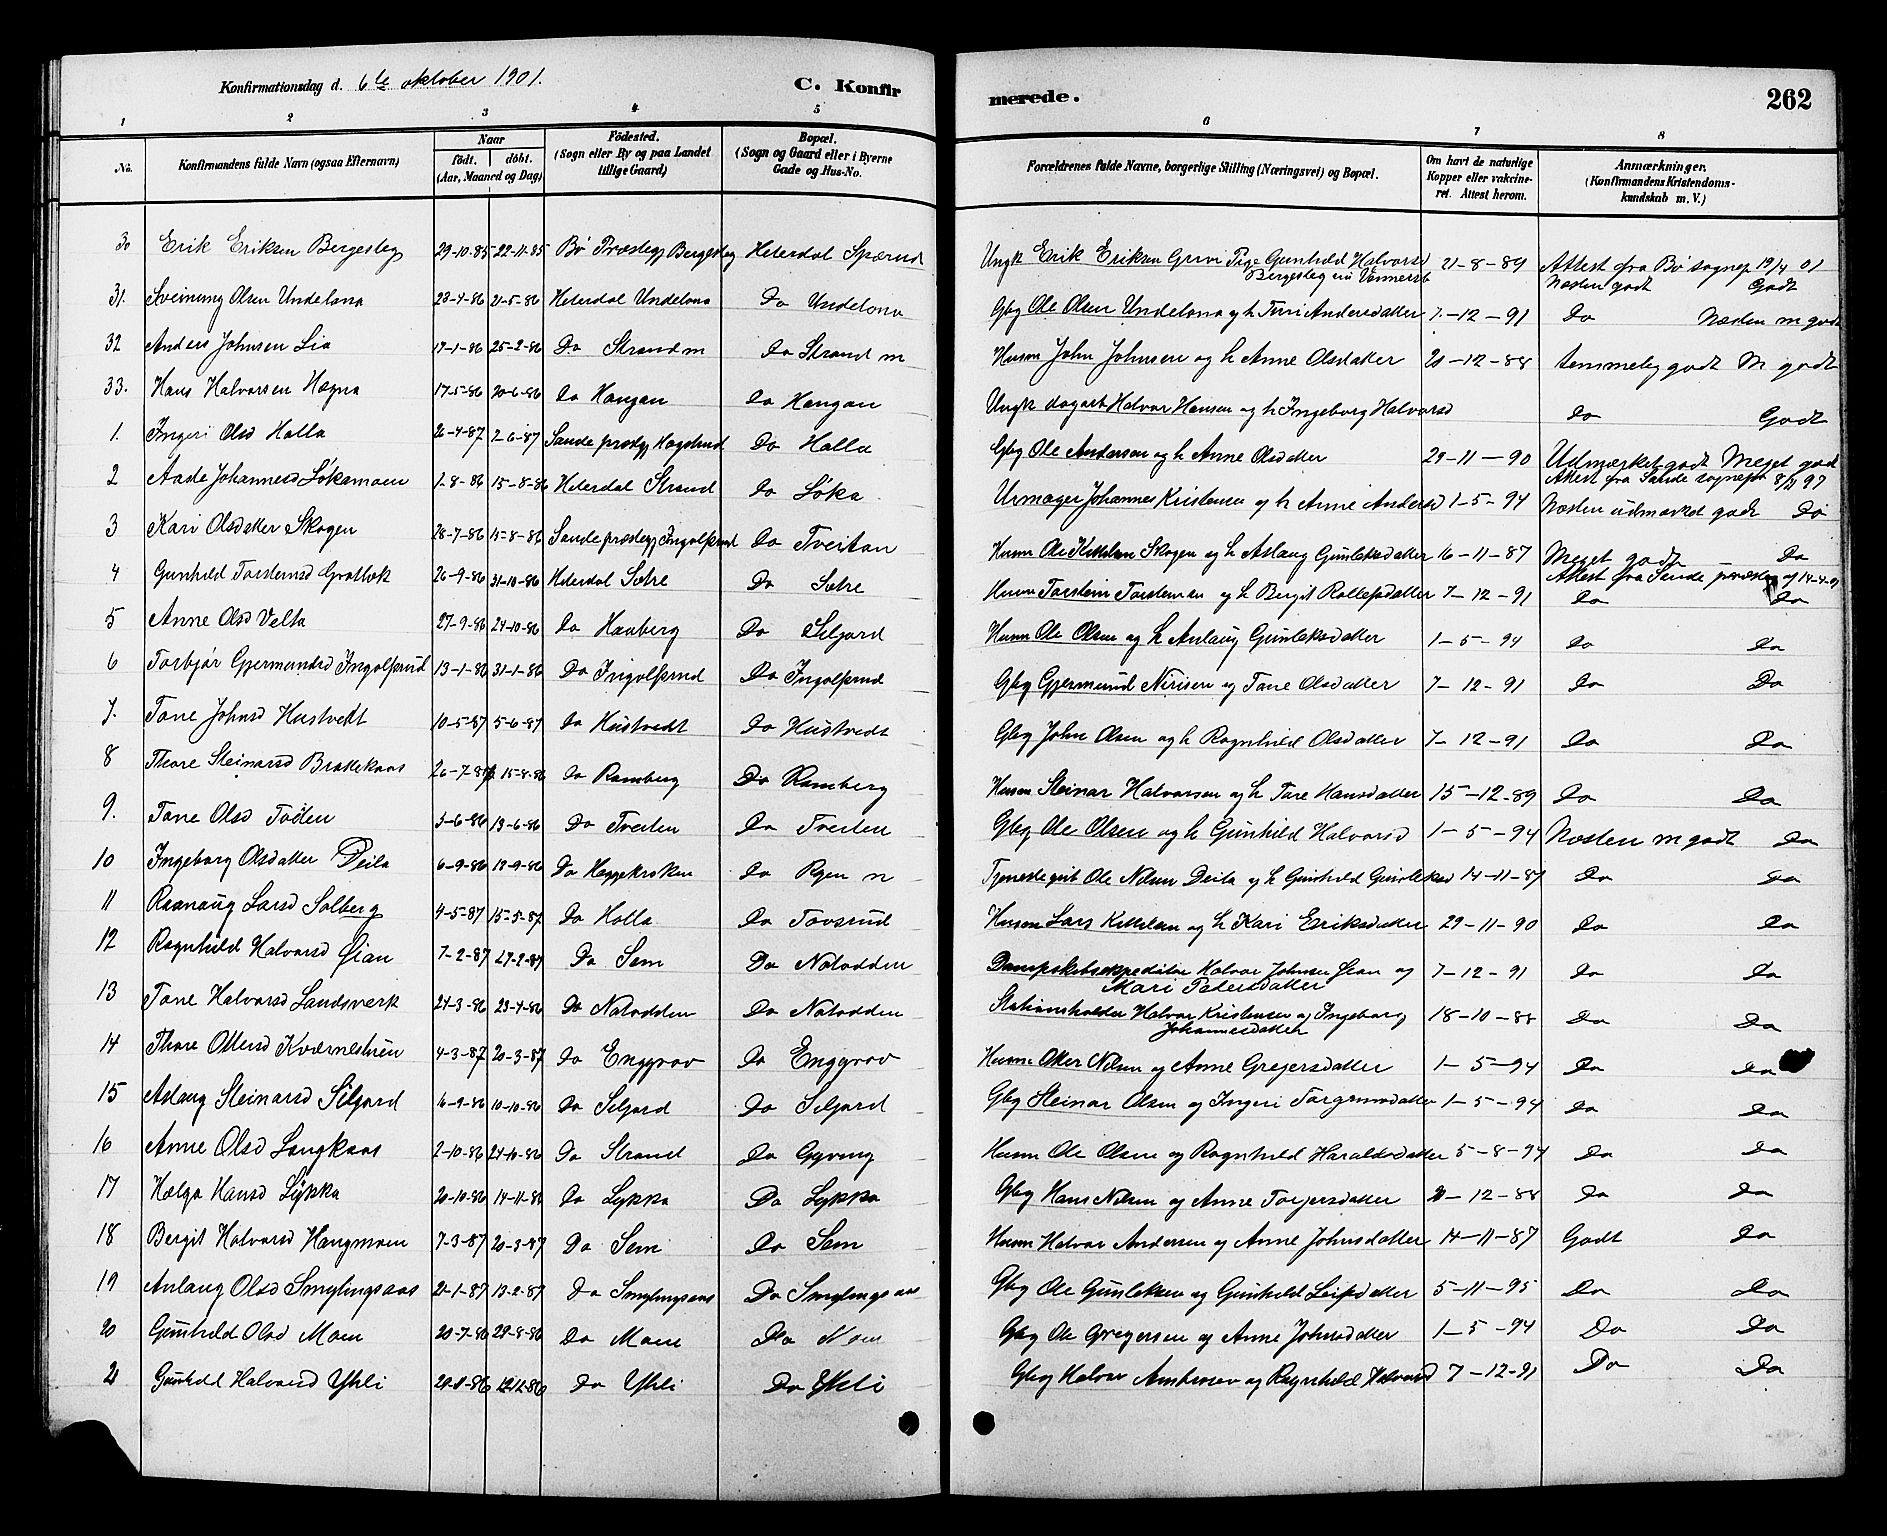 Konfirmationsdag d. 6te oktober 1901.
C. Konfirmerede.
262
1 2 3 4 5 6 7 8
No. Konfirmandens fulde Navn (ogsaa Efternavn) Naar født. døbt. (Aar, Maaned og Dag) Födested. (Sogn eller By og paa Landet tillige Gaard) Bopæl. (Sogn og Gaard eller i Byerne Gade og Hus-No. Forældrenes fulde Navne, borgerlige Stilling (Næringsvei) og Bopæl. Om havt de naturlige Kopper eller vakcineret. Attest herom. Anmærkninger. (Konfirmandens Kristendomskundskab m. V.)
30 Erik Eriksen Bergesleg 29-10-85 22-11-85 Bø Præstegj Bergesleg Heterdal Spærud Ungk Erik Eriksen Grivi Pige Gunhild Halvorsd 21-8-89 Attest fra Bø sognep 19/4 01
Bergesleg Næsten godt Godt
31. Sveinung Olsen Undelona 23-4-86 21-5-86 Heterdal Undelona Do Undelona Gbg Ole Olsen Undelona og h Turi Andersdatter 7-12-91 Do Næsten m godt
32 Anders Johnsen Lia 17-1-86 25-2-86 Do Strand m Do Strand m Husm John Johnsen og h Anne Olsdatter 20-12-88 temmelig godt M godt
33. Hans Halvorsen Høgna 17-5-86 20-6-86 Do Haugan Do Haugan Ungk dagarb Halvor Hansen og h Ingeborg Halvorsd Do Godt
1. Ingeri Olsd Holla 26-4-87 2-6-87 Sande prestegj Hogstrud Do Holla Gbg Ole Andersen og h Anne Olsdatter 29-11-90 Udmærket godt Meget god
Attest fra Sande sognepr 8/11 97
2 Aase Johannesd Løkamoen 1-8-86 15-8-86 Heterdal Strand Do Løka Urmager Johannes Kristensen og h Anne Andersd 1-5-94 Næsten udmærket godt Do
3 Kari Olsdatter Skogen 28-7-86 15-8-86 Sande prestegj Ingolfsrud Do Tveitan Husm Ole Kittelsen Skogen og h Aslaug Gunleksdatter 16-11-87 Meget godt Do
Attest fra Sande præsteg af 14-4-91
4 Gunhild Torsteinsd Grotbæk 26-9-86 31-10-86 Heterdal Sætre Do Sætre Husm Torstein Torsteinsen og h Bergit Rollefsdatter 7-12-91 Do Do
5 Anne Olsd Velta 27-9-86 24-10-86 Do Haaberg Do Seljord Husm Ole Olsen og h Anlaug Gunleksdatter 1-5-94 Do Do
6 Torbjør Gjermundsd Ingolfsrud 13-1-86 31-1-86 Do Ingolfsrud Do Ingolfsrud Gbg Gjermund Nirisen og Tone Olsdatter 7-12-91 Do Do
7. Tone Johnsd Hustvedt 10-5-87 5-6-87 Do Hustvedt Do Hustvedt Gbg John Olsen og h Ragnhild Olsdatter 7-12-91 Do Do
8 Thore Steinarsd Brattekaas 26-7-86 15-8-86 Do Ramberg Do Ramberg Husm Steinar Halvorsen og h Tore Hansdatter 15-12-89 Do Do
9. Tone Olsd Toden 5-6-86 13-6-86 Do Tveiten Do Tveiten Gbg Ole Olsen og h Gunhild Halvorsd 1-5-94 Næsten m godt Do
10 Ingeborg Olsdatter Deila 6-9-86 19-9-86 Do Heggekroken Do Ryen n Tjenestegut Ole Nilsen Deila og h Gunhild Gunleksd 14-11-87 Do Do
11 Raanaug Larsd Solberg 4-5-87 15-5-87 Do Holla Do Tovsrud Husm Lars Kittelsen og h Kari Eriksdatter 29-11-90 Do Do
12 Ragnhild Halvorsd Øian 7-2-87 27-2-87 Do Sem Do Notodden Dampskibsexpeditør Halvor Johnsen Øian og 7-12-91 Do Do
Mari Petersdatter
13 Tone Halvorsd Landsverk 24-3-86 23-4-86 Do Notodden Do Notodden Stationsholder Halvor Kristensen og Ingeborg 18-10-88 Do Do
Johannesdatter
14 Thore Ottersd Kværnestrøn 4-3-87 20-3-87 Do Enggrov Do Enggrov Husm Otter Nilsen og Anne Gregersdatter 1-5-94 Do Do
15 Aslaug Steinarsd Seljord 16-9-86 10-10-86 Do Seljord Do Seljord Gbg Steinar Olsen og Ingeri Torgrimsdatter 1-5-94 Do Do
16 Anne Olsd Langkaas 2-10-86 24-10-86 Do Strand Do Gyving Husm Ole Olsen og Ragnhild Haraldsdatter 5-8-94 Do Do
17 Helga Hansd Lykka 20-10-86 14-11-86 Do Lykka Do Lykka Gbg Hans Nilsen og Anne Torjersdatter 20-12-88 Do Do
18 Bergit Halvorsd Haugmoen 7-3-87 20-3-87 Do Sem Do Sem Husm Halvor Andersen og Anne Johnsdatter 14-11-87 Godt Do
19 Anlaug Olsd Smylingsaas 21-1-87 13-2-87 Do Smylingsaas Do Smylingsaas Gbg Ole Gunleksen og Gunhild Leifsdatter 5-11-95 Do Do
20 Gunhild Olsd Moen 20-7-86 29-8-86 Do Moen Do Moen Gbg Ole Gregersen og Anne Johnsdatter 1-5-94 Do Do
21 Gunhild Halvorsd Ytteli Do Ytteli Do Ytteli Gbg Halvor Andersen og Ragnhild Halvorsd 7-12-91 Do Do